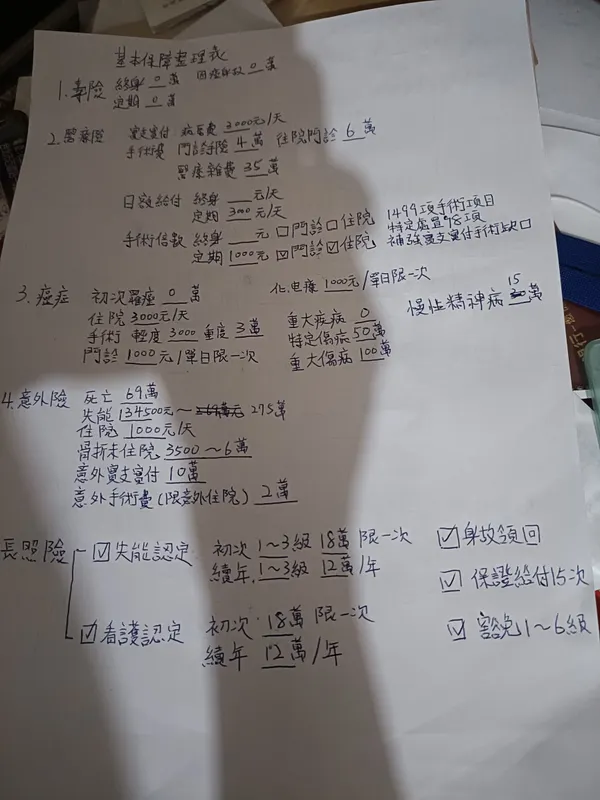 基本保障整理表
1.壽險 終身 0 萬 因癌身故 0 萬
定期 0 萬
2.醫療險 實支實付 病房費 3000元/天
手術費 門診手術 4 萬 住院門診 6 萬
醫療雜費 35 萬
日額給付 終身 ___元/天
定期 3000 元/天
手術倍數 終身 ___元 □門診□住院
定期 1000元 ☑門診☑住院
1499項手術項目
特定處置 18項
補強實支實付手術缺口
3.癌症 初次罹癌 0 萬
住院 3000元/天
手術 輕度 3000 重度 3萬
門診 1000元/單日限一次
化.電療 1000元/單日限一次
重大疾病 0
特定傷病 50萬
重大傷病 100萬
慢性精神病 15萬
4.意外險 死亡 69萬
失能 134500元~ 275萬
住院 1000元/天
骨折未住院 3500~6萬
意外實支實付 10萬
意外手術費(限意外住院) 2萬
長照險 ☑失能認定 初次 1~3級 18萬 限一次
續年 1~3級 12萬/年
☑看護認定 初次 18萬 限一次
續年 12萬/年
☑身故領回
☑保證給付15次
☑豁免1~6級